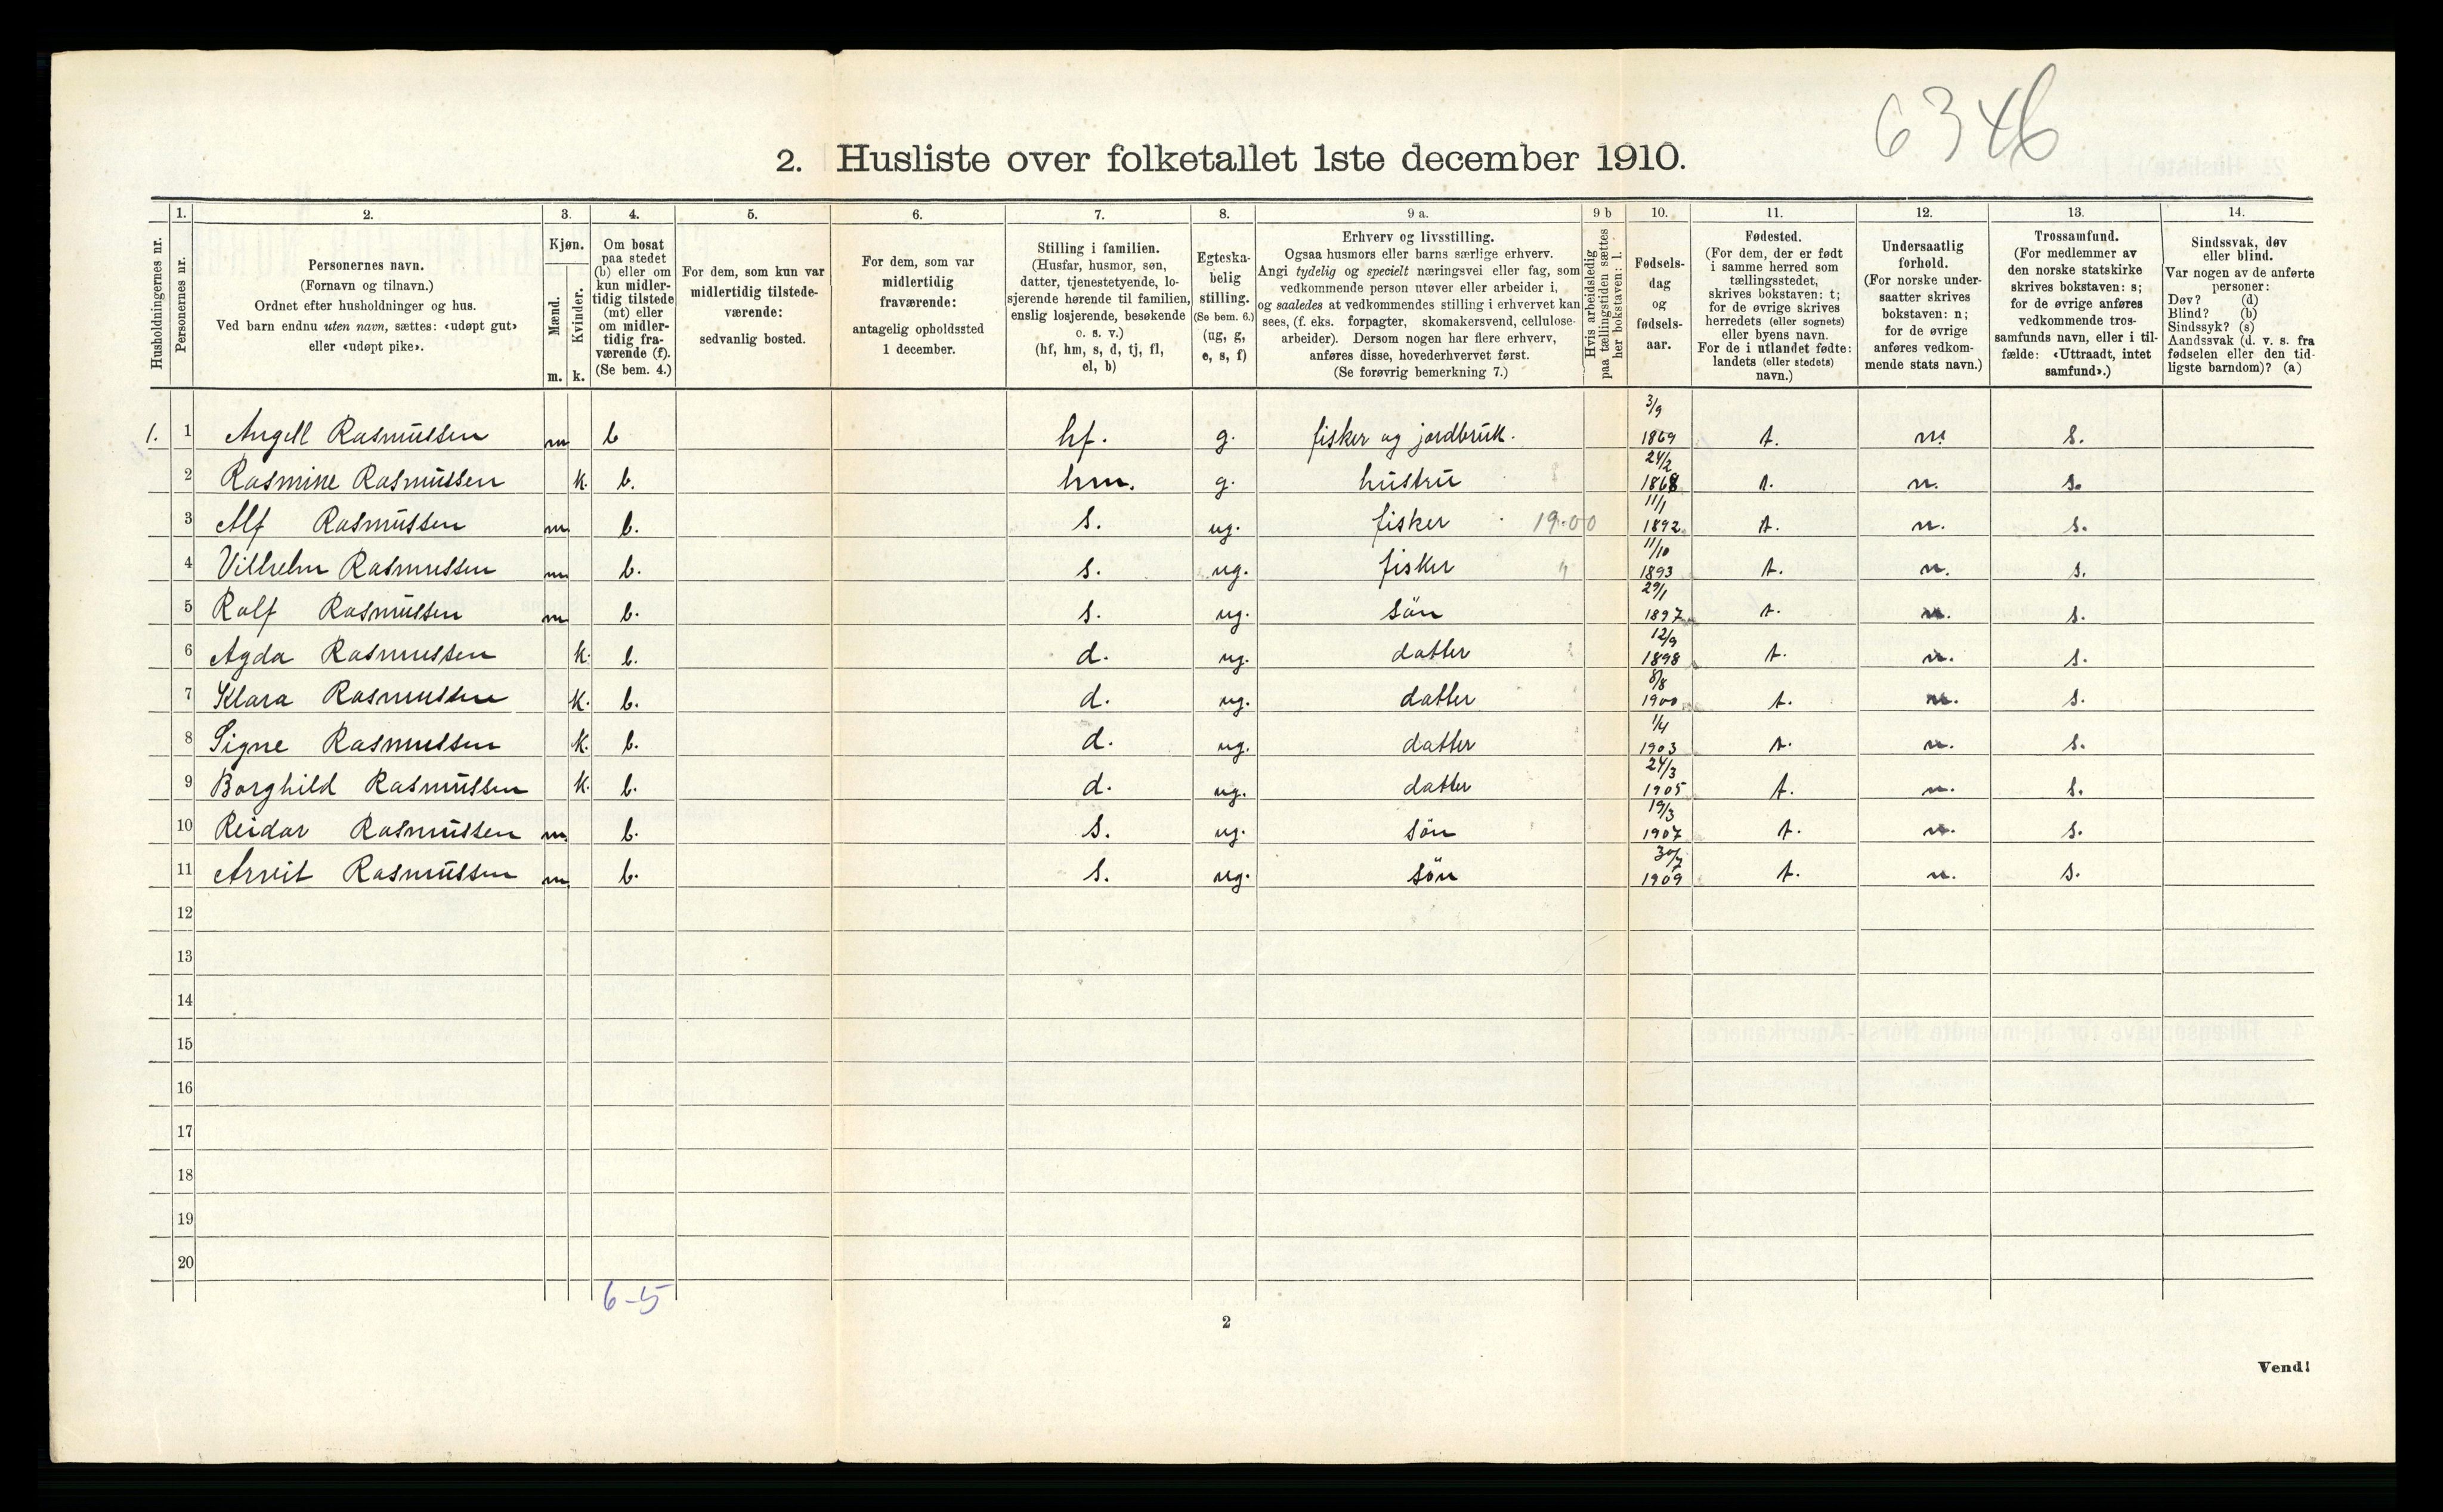 6346
2. Husliste over folketallet 1ste december 1910.
Husholdningernes nr.
1.
Personernes nr.
2.
Personernes navn.
(Fornavn og tilnavn.)
Ordnet efter husholdninger og hus.
Ved barn endnu uten navn, sættes: «udøpt gut»
eller «udøpt pike».
3.
Kjøn.
Mænd.
Kvinder.
m. k.
4.
Om bosat
paa stedet
(b) eller om
kun midler-
tidig tilstede
(mt) eller
om midler-
tidig fra-
værende (f).
(Se bem. 4.)
5.
For dem, som kun var
midlertidig tilstede-
værende:
sedvanlig bosted.
6.
For dem, som var
midlertidig
fraværende:
antagelig opholdssted
1 december.
7.
Stilling i familien.
(Husfar, husmor, søn,
datter, tjenestetyende, lo-
sjerende hørende til familien,
enslig losjerende, besøkende
o. s. v.)
(hf, hm, s, d, tj, fl,
el, b)
8.
Egteska-
belig
stilling.
(Se bem. 6.)
(ug, g,
e, s, f)
9 a.
Erhverv og livsstilling.
Ogsaa husmors eller barns særlige erhverv.
Angi tydelig og specielt næringsvei eller fag, som
vedkommende person utøver eller arbeider i,
og saaledes at vedkommendes stilling i erhvervet kan
sees, (f. eks. forpagter, skomakersvend, cellulose-
arbeider). Dersom nogen har flere erhverv,
anføres disse, hovederhvervet først.
(Se forøvrig bemerkning 7.)
9 b
Hvis arbeidsledig
paa tællingstiden sættes
her bokstaven: l.
10.
Fødsels-
dag
og
fødsels-
aar.
11.
Fødested.
(For dem, der er født
i samme herred som
tællingsstedet,
skrives bokstaven: t;
for de øvrige skrives
herredets (eller sognets)
eller byens navn.
For de i utlandet fødte:
landets (eller stedets)
navn.)
12.
Undersaatlig
forhold.
(For norske under-
saatter skrives
bokstaven: n;
for de øvrige
anføres vedkom-
mende stats navn.)
13.
Trossamfund.
(For medlemmer av
den norske statskirke
skrives bokstaven: s;
for de øvrige anføres
vedkommende tros-
samfunds navn, eller i til-
fælde: «Uttraadt, intet
samfund».)
14.
Sindssvak, døv
eller blind.
Var nogen av de anførte
personer:
Døv? (d)
Blind? (b)
Sindssyk? (s)
Aandssvak (d. v. s. fra
fødselen eller den tid-
ligste barndom)? (a)
1. 1 Angell Rasmussen m b hf. g. fisker og jordbruk. 3/9 1869 t. n. s.
2 Rasmine Rasmussen k. b. hm. g. hustru 24/2 1868 t. n. s.
3 Alf Rasmussen m b. s. ug. fisker 19.00 11/1 1892 t. n. s.
4 Vilhelm Rasmussen m b. s. ug. fisker 11/10 1893 t. n. s.
5 Rolf Rasmussen m b. s. ug. sön 29/1 1897 t. n. s.
6 Agda Rasmussen k. b. d. ug. datter 12/9 1898 t. n. s.
7 Klara Rasmussen k. b. d. ug. datter 8/8 1900 t. n. s.
8 Signe Rasmussen k. b. d. ug. datter 1/4 1903 t. n. s.
9 Borghild Rasmussen k. b. d. ug. datter 24/3 1905 t. n. s.
10 Reidar Rasmussen m. b. s. ug. sön 19/3 1907 t. n. s.
11 Arvit Rasmussen m b. s. ug. sön 30/7 1909 t. n. s.
12
13
14
15
16
17
18
19
20
6-5
2
Vend!